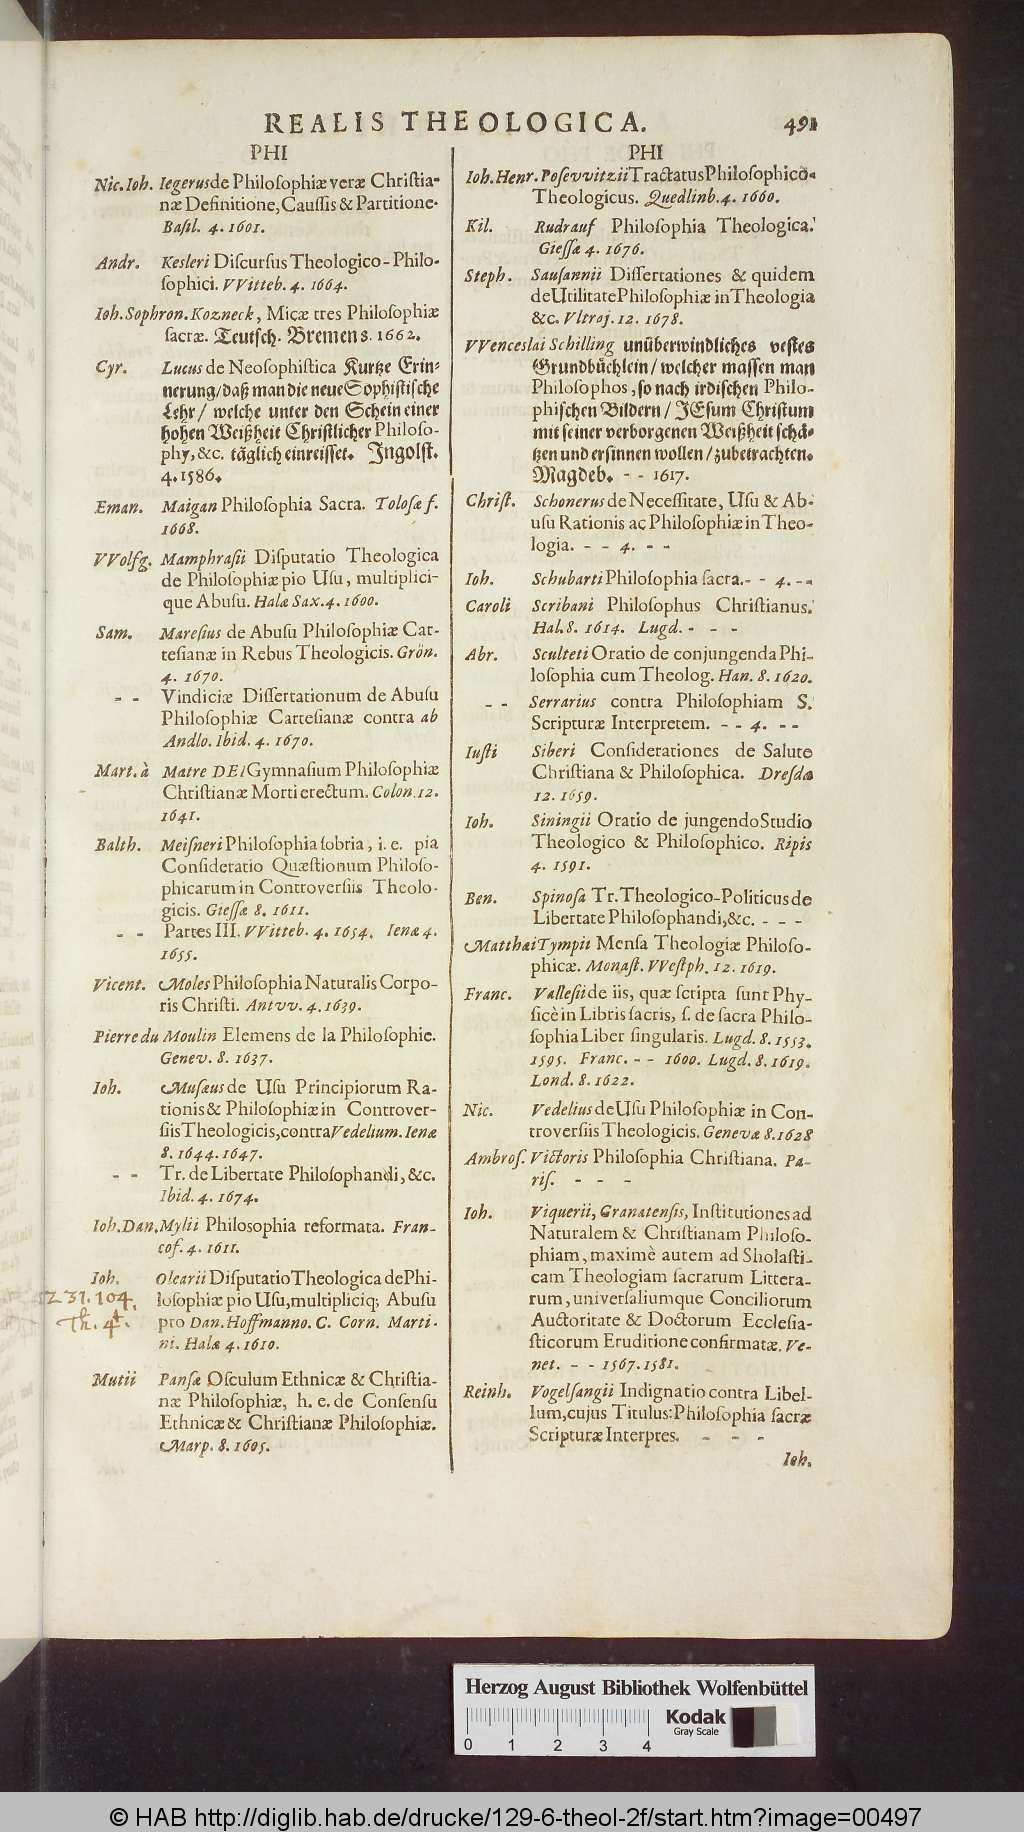 REALIS THEOLOGICA. 491
PHI
Nic. Ioh. Iegerus de Philosophiæ veræ Christia-
næ Definitione, Caussis & Partitione.
Basil. 4. 1601.
Andr. Kesleri Discursus Theologico-Philo-
sophici. VVitteb. 4. 1664.
Ioh. Sophron. Kozneck, Micæ tres Philosophiæ
sacræ. Teutsch. Bremens. 1662.
Cyr. Lucus de Neosophistica Kurtze Erin-
nerung/ daß man die neue Sophistische
Lehr/ welche unter den Schein einer
hohen Weißheit Christlicher Philoso-
phy, &c. täglich einreisset. Ingolst.
4. 1586.
Eman. Maigan Philosophia Sacra. Tolosæ f.
1668.
VVolfg. Mamphrasii Disputatio Theologica
de Philosophiæ pio Usu, multiplici-
que Abusu. Halæ Sax. 4. 1600.
Sam. Maresius de Abusu Philosophiæ Car-
tesianæ in Rebus Theologicis. Grön.
4. 1670.
- - Vindiciæ Dissertationum de Abusu
Philosophiæ Cartesianæ contra ab
Andlo. Ibid. 4. 1670.
Mart. à Matre DEI Gymnasium Philosophiæ
Christianæ Morti erectum. Colon. 12.
1641.
Balth. Meisneri Philosophia sobria, i. e. pia
Consideratio Quæstionum Philoso-
phicarum in Controversiis Theolo-
gicis. Giessæ 8. 1611.
- - Partes III. VVitteb. 4. 1654. Ienæ 4.
1655.
Vicent. Moles Philosophia Naturalis Corpo-
ris Christi. Antvv. 4. 1639.
Pierre du Moulin Elemens de la Philosophie.
Genev. 8. 1637.
Ioh. Musæus de Usu Principiorum Ra-
tionis & Philosophiæ in Controver-
siis Theologicis, contra Vedelium. Ienæ
8. 1644. 1647.
- - Tr. de Libertate Philosophandi, &c.
Ibid. 4. 1674.
Ioh. Dan. Mylii Philosophia reformata. Fran-
cof. 4. 1611.
Ioh. Olearii Disputatio Theologica de Phi-
losophiæ pio Usu, multipliciq; Abusu
pro Dan. Hoffmanno. C. Corn. Marti-
ni. Halæ 4. 1610.
231.104.
Th. 4t.
Mutii Pansæ Osculum Ethnicæ & Christia-
næ Philosophiæ, h. e. de Consensu
Ethnicæ & Christianæ Philosophiæ.
Marp. 8. 1605.
PHI
Ioh. Henr. Posevvitzii Tractatus Philosophico-
Theologicus. Quedlinb. 4. 1660.
Kil. Rudrauf Philosophia Theologica.
Giessæ 4. 1676.
Steph. Sausannii Dissertationes & quidem
de Utilitate Philosophiæ in Theologia
&c. Vltraj. 12. 1678.
VVenceslai Schilling unüberwindliches vestes
Grundbüchlein/ welcher massen man
Philosophos, so nach irdischen Philo-
phischen Bildern/ JEsum Christum
mit seiner verborgenen Weißheit schä-
tzen und ersinnen wollen/ zubetrachten.
Magdeb. - - 1617.
Christ. Schonerus de Necessitate, Usu & Ab-
usu Rationis ac Philosophiæ in Theo-
logia. - - 4. - -
Ioh. Schubarti Philosophia sacra. - - 4. - -
Caroli Scribani Philosophus Christianus.
Hal. 8. 1614. Lugd. - - -
Abr. Sculteti Oratio de conjungenda Phi-
losophia cum Theolog. Han. 8. 1620.
- - Serrarius contra Philosophiam S.
Scripturæ Interpretem. - - 4. - -
Iusti Siberi Considerationes de Salute
Christiana & Philosophica. Dresdæ
12. 1659.
Ioh. Siningii Oratio de jungendo Studio
Theologico & Philosophico. Ripis
4. 1591.
Ben. Spinosa Tr. Theologico-Politicus de
Libertate Philosophandi, &c. - - -
Matthæi Tympii Mensa Theologiæ Philoso-
phicæ. Monast. VVestph. 12. 1619.
Franc. Vallesii de iis, quæ scripta sunt Phy-
sicè in Libris sacris, s. de sacra Philo-
sophia Liber singularis. Lugd. 8. 1553.
1595. Franc. - - 1600. Lugd. 8. 1619.
Lond. 8. 1622.
Nic. Vedelius de Usu Philosophiæ in Con-
troversiis Theologicis. Genevæ 8. 1628
Ambros. Victoris Philosophia Christiana. Pa-
ris. - - -
Ioh. Viquerii, Granatensis, Institutiones ad
Naturalem & Christianam Philoso-
phiam, maximè autem ad Sholasti-
cam Theologiam sacrarum Littera-
rum, universaliumque Conciliorum
Auctoritate & Doctorum Ecclesia-
sticorum Eruditione confirmatæ. Ve-
net. - - 1567. 1581.
Reinh. Vogelsangii Indignatio contra Libel-
lum, cujus Titulus: Philosophia sacræ
Scripturæ Interpres. - - -
Ioh.
Herzog August Bibliothek Wolfenbüttel
0 1 2 3 4
Kodak
Gray Scale
© HAB http://diglib.hab.de/drucke/129-6-theol-2f/start.htm?image=00497